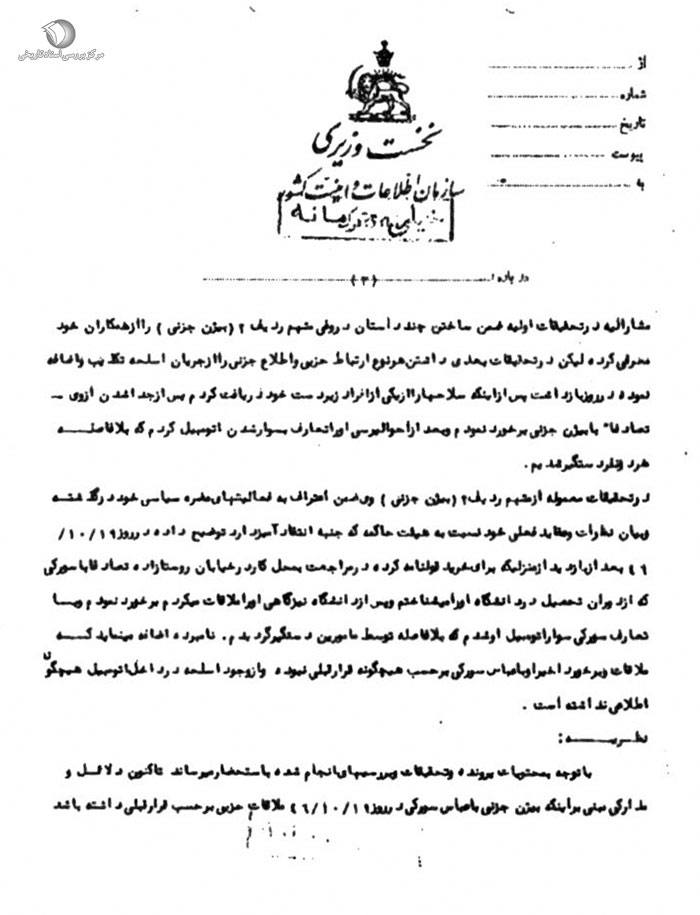 مرکز بررسی اسناد تاریخی
از
شماره
تاریخ
پیوست
به
نخست وزیری
سازمان اطلاعات و امنیت کشور
درباره:
(۳)
مشارالیه در تحقیقات اولیه ضمن ساختن چند داستان دروغی متهم ردیف ۲ (بیژن جزنی) را از همکاران خود
معرفی کرده لیکن در تحقیقات بعدی داشتن هر نوع ارتباط حزبی و اطلاع جزنی را از جریان اسلحه تکذیب و اضافه
نموده در روز بازداشت پس از اینکه سلاحها را از یکی از افراد زیردست خود دریافت کردم پس از جدا شدن از وی -
تصادفا" با بیژن جزنی برخورد نمودم و بعد از احوالپرسی او را تعارف بسوار شدن اتومبیل کردم که بلافاصله
هر دو نفر دستگیر شدیم.
در تحقیقات معموله از متهم ردیف ۲ (بیژن جزنی) وی ضمن اعتراف به فعالیتهای مضره سیاسی خود در گذشته
وبیان نظرات و عقاید فعلی خود نسبت به هیئت حاکمه که جنبه انتقاد آمیز دارد توضیح داده در روز ۱۰/۱۹/
۴۶ بعد از بازدید از منزلیکه برای خرید قولنامه کرده در مراجعت بمحل کار در خیابان روستازاده تصادفا با سورکی
که از دوران تحصیل در دانشگاه او را میشناختم و پس از دانشگاه نیز گاهی او را ملاقات میکردم برخورد نمودم و با
تعارف سورکی سوار اتومبیل او شدم که بلافاصله توسط مامورین دستگیر گردیدم. نامبرده اضافه مینماید که
ملاقات و برخورد اخیر او با عباس سورکی برحسب هیچگونه قرار قبلی نبوده و از وجود اسلحه در داخل اتومبیل هیچگونه
اطلاعی نداشته است.
نظریه:
با توجه بمحتویات پرونده و تحقیقات و بررسیهای انجام شده باستحضار میرساند تاکنون دلائل و
مدارکی مبنی بر اینکه بیژن جزنی با عباس سورکی در روز ۴۶/۱۰/۱۹ ملاقات حزبی برحسب قرار قبلی داشته باشد